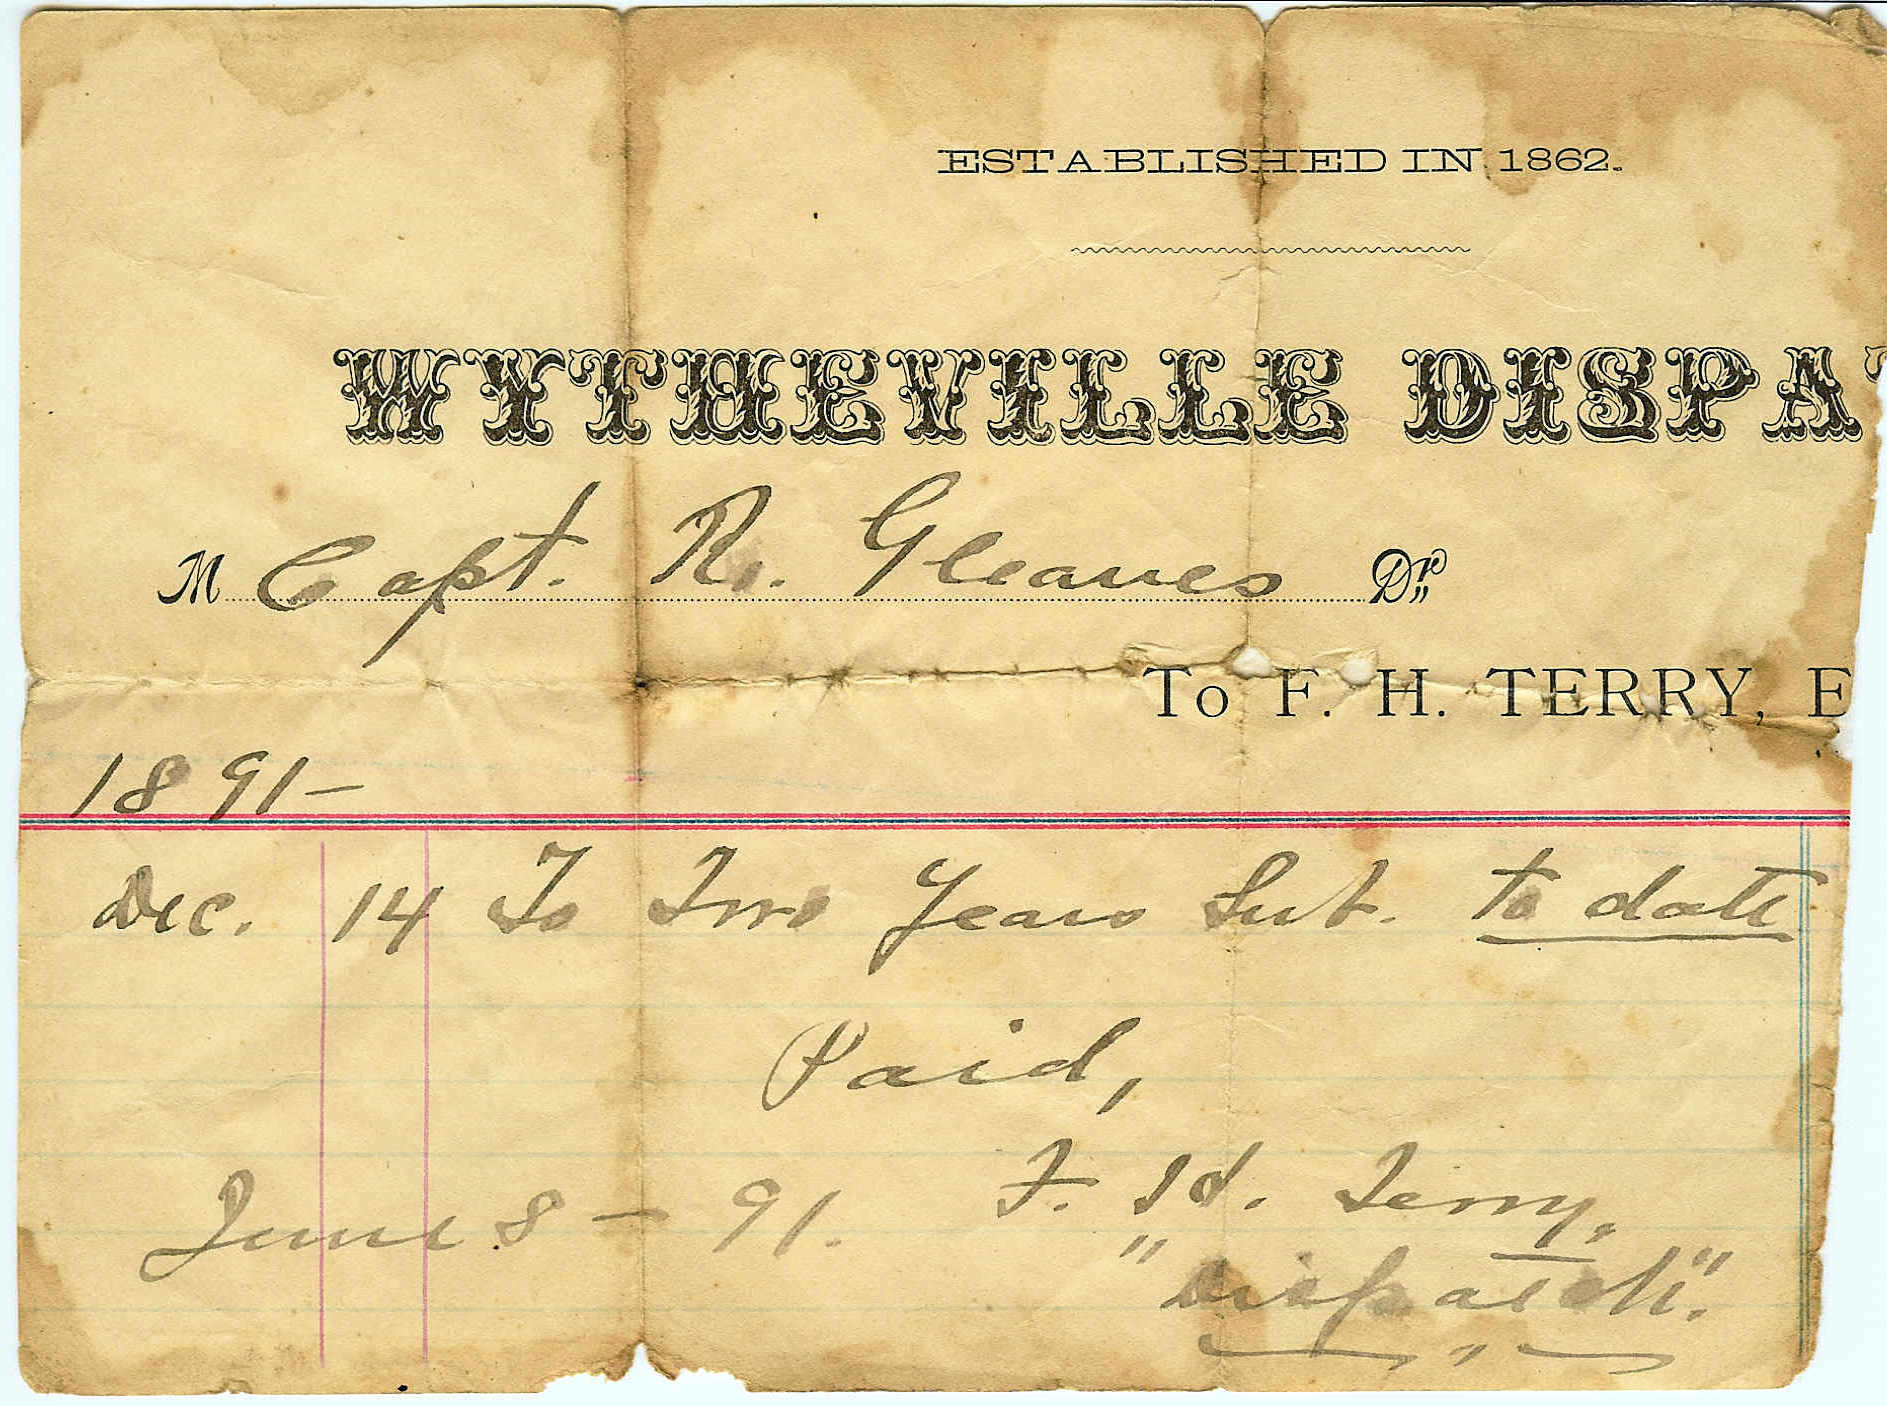 ESTABLISHED IN 1862.
WYTHEVILLE DISPAT
M Capt. R. Gleaves Dr.
To F. H. TERRY, E
1891-
Dec. 14 To Two Years Sub. to date
Paid,
F. H. Terry,
June 8 - 91.
"Dispatch".